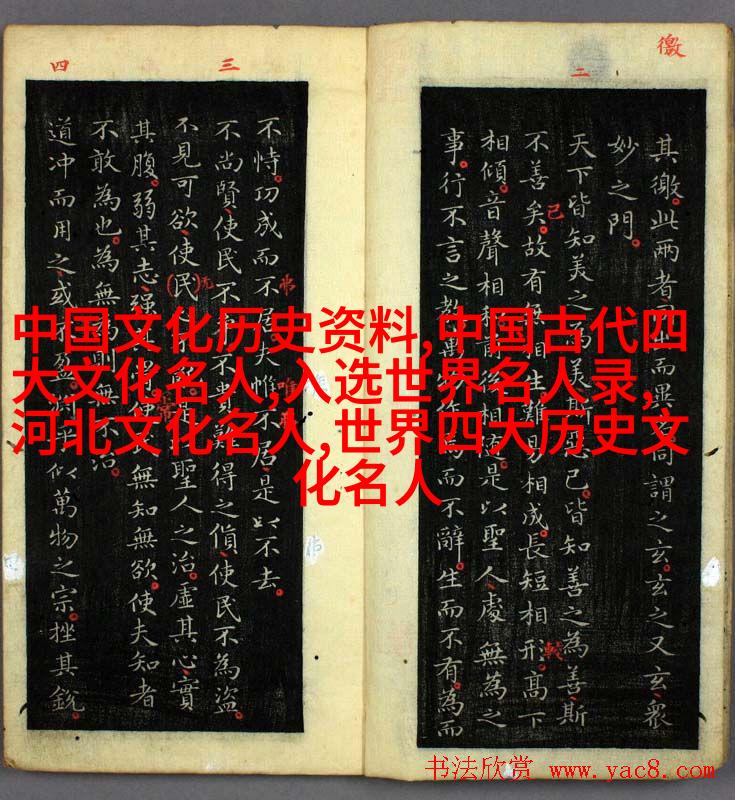 徼
二
其徼此兩者而異名同謂之玄玄之又玄衆
妙之門
天下皆知美之為美斯惡已皆知善之為善斯
不善矣故有無相生難易相成長短相形高下
相傾音聲相和前後相隨是以聖人處無為之
事行不言之教萬物作為而不辭生而不有為而
三
四
不恃功成而不居夫惟不居是以不去
不尚賢使民不爭不貴難得之貨使民不為盜
不見可欲使民是聖人之治虛其心實
其腹弱其志強其使民無知無欲使夫知者
不敢為也為無為則無不治
道冲而用之或不盈淵乎似萬物之宗挫其銳
中国文化历史资料,中国古代四
大文化名人,入选世界名人录,
河北文化名人,世界四大历史文
化名人
书法欣赏 www.yac8.com